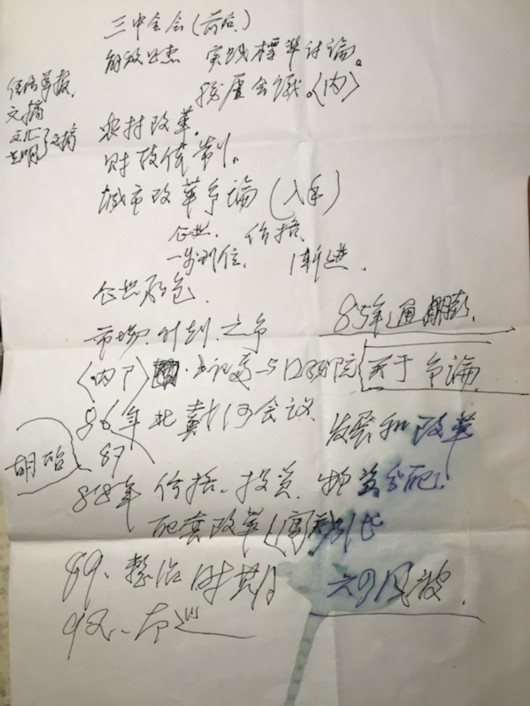 三中全会(前后)
解放思想 实践标准讨论。
务虚会议。(内)
经济学报,
文摘
文汇
光明 文摘
农村改革。
财政体制。
城市改革争论(入手)
企业、价格、
一步到位、渐进、
企业承包
市场、计划之争
85年通膨
(内部)
关于争论
86年北戴河会议
发展和改革
87
胡
88年价格、投资、物资分配
配套改革
89、整治时期
六四风波。
92、南巡